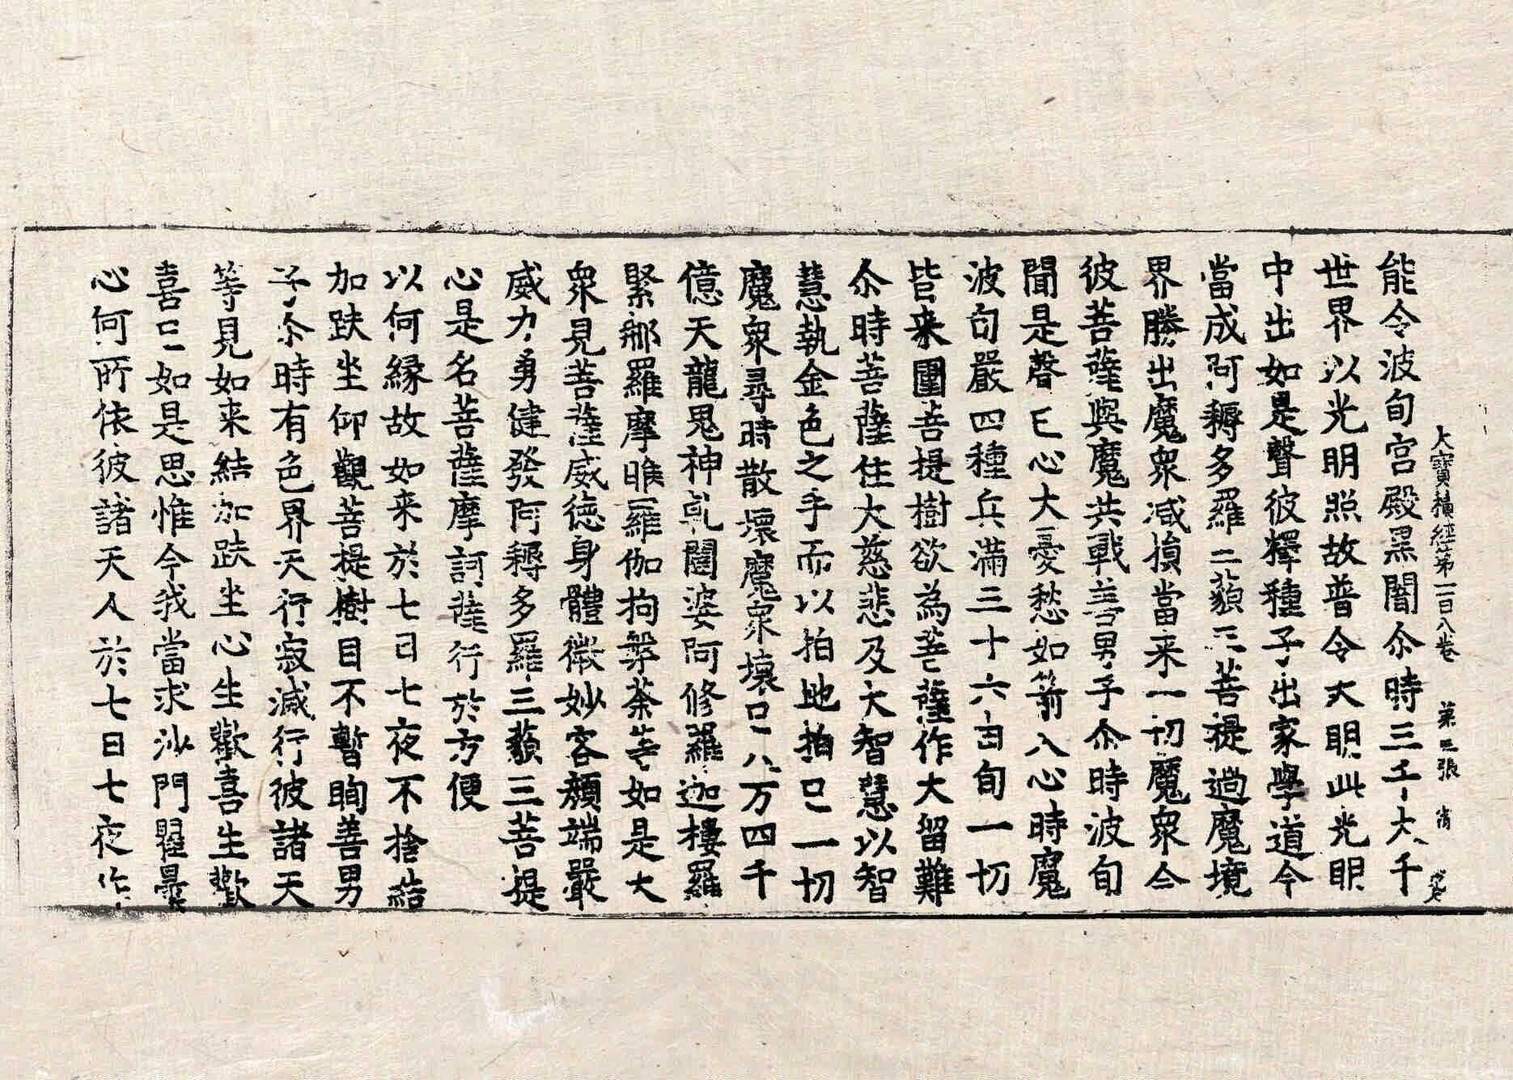 大寶積經第一百八卷 第三張 宵
能令波旬宮殿黑闇尒時三千大千
世界以光明照故普令大明此光明
中出如是聲彼釋種子出家學道今
當成阿耨多羅三藐三菩提過魔境
界勝出魔衆减損當来一切魔衆今
彼菩薩與魔共戰善男子尒時波旬
聞是聲已心大憂愁如箭入心時魔
波旬嚴四種兵滿三十六由旬一切
皆来圍菩提樹欲為菩薩作大留難
尒時菩薩住大慈悲及大智慧以智
慧執金色之手而以拍地拍已一切
魔衆尋時散壞魔衆壞已八万四千
億天龍鬼神乹闥婆阿修羅迦樓羅
緊那羅摩睺羅伽拘辦荼等如是大
衆見菩薩威德身體微妙容顏端嚴
威力勇健發阿耨多羅三藐三菩提
心是名菩薩摩訶薩行於方便
以何緣故如来於七日七夜不捨結
加趺坐仰觀菩提樹目不暫眴善男
子尒時有色界天行寂滅行彼諸天
等見如来結加趺坐心生歡喜生歡
喜已如是思惟今我當求沙門瞿曇
心何所依彼諸天人於七日七夜作